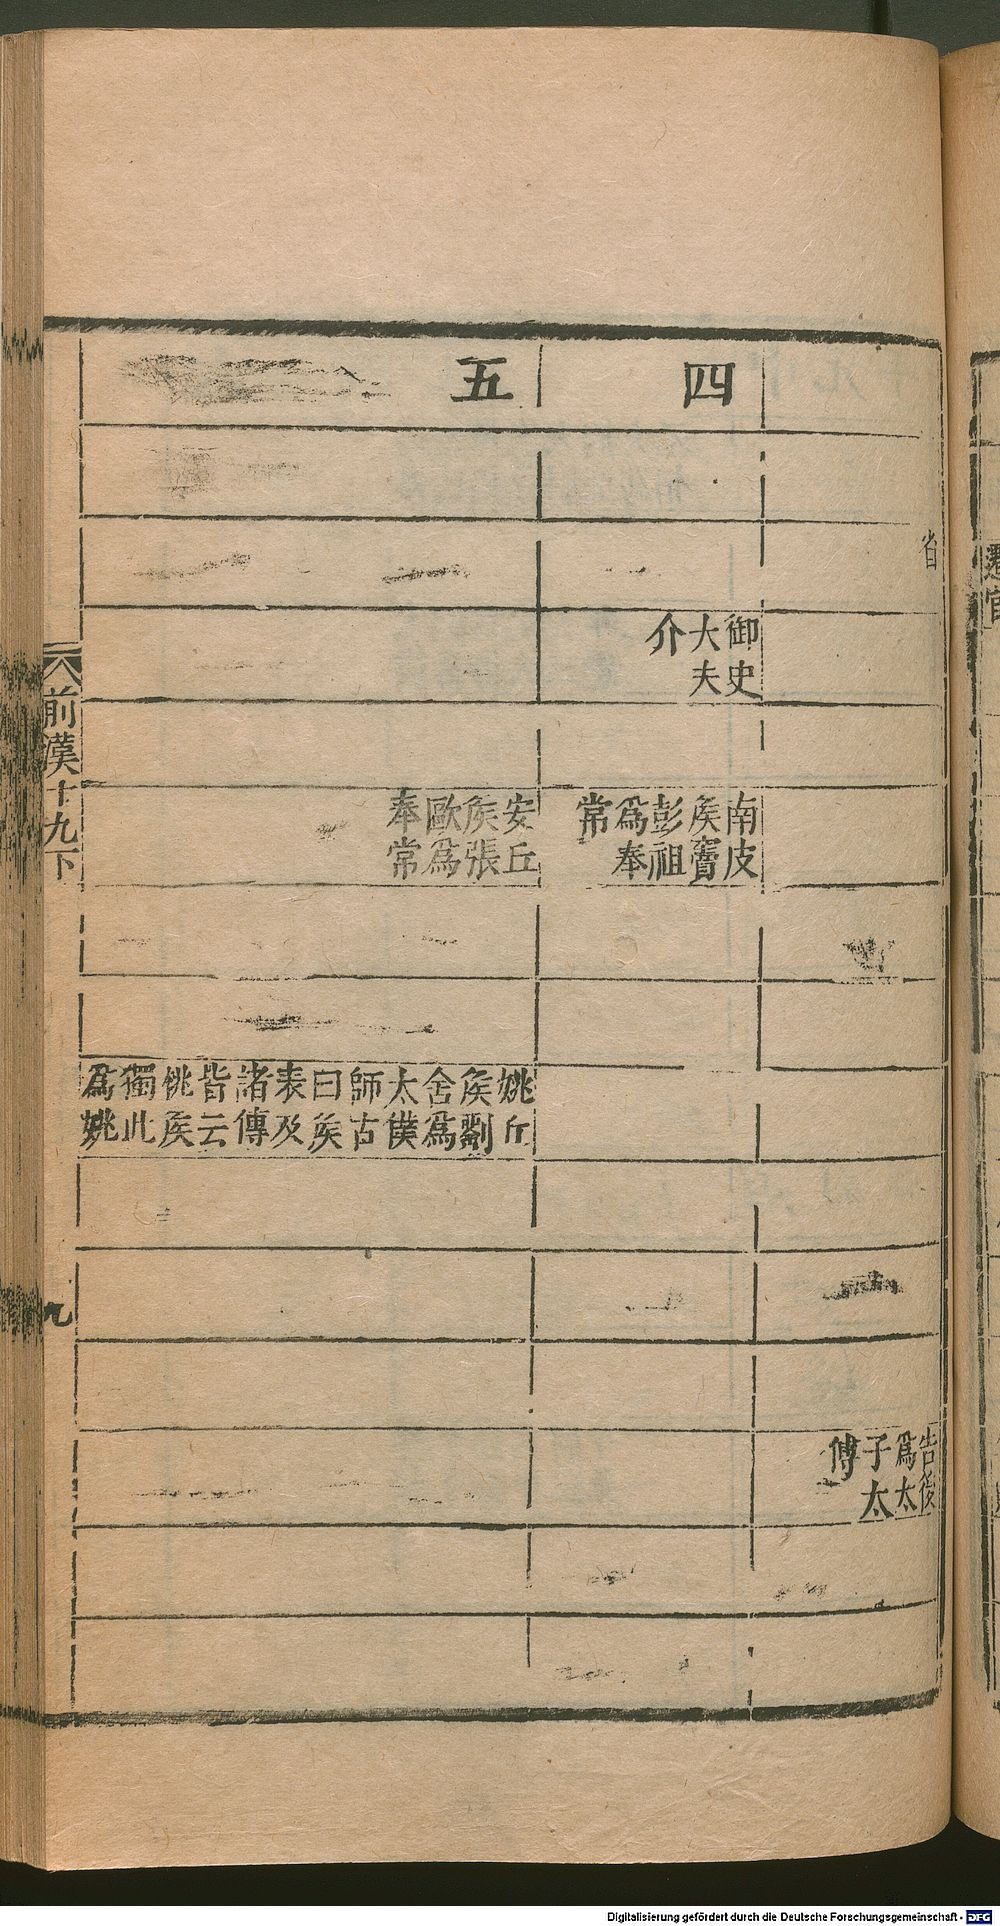 省
告後
爲太
子太
傅
四
御史
大夫
介
南皮
矦竇
彭祖
爲奉
常
五
安丘
矦張
歐爲
奉常
姚丘
矦劉
舍爲
太僕
師古
曰矦
表及
諸傳
皆云
桃矦
獨此
爲姚
前漢十九下
九
Digitalisierung gefördert durch die Deutsche Forschungsgemeinschaft - DFG